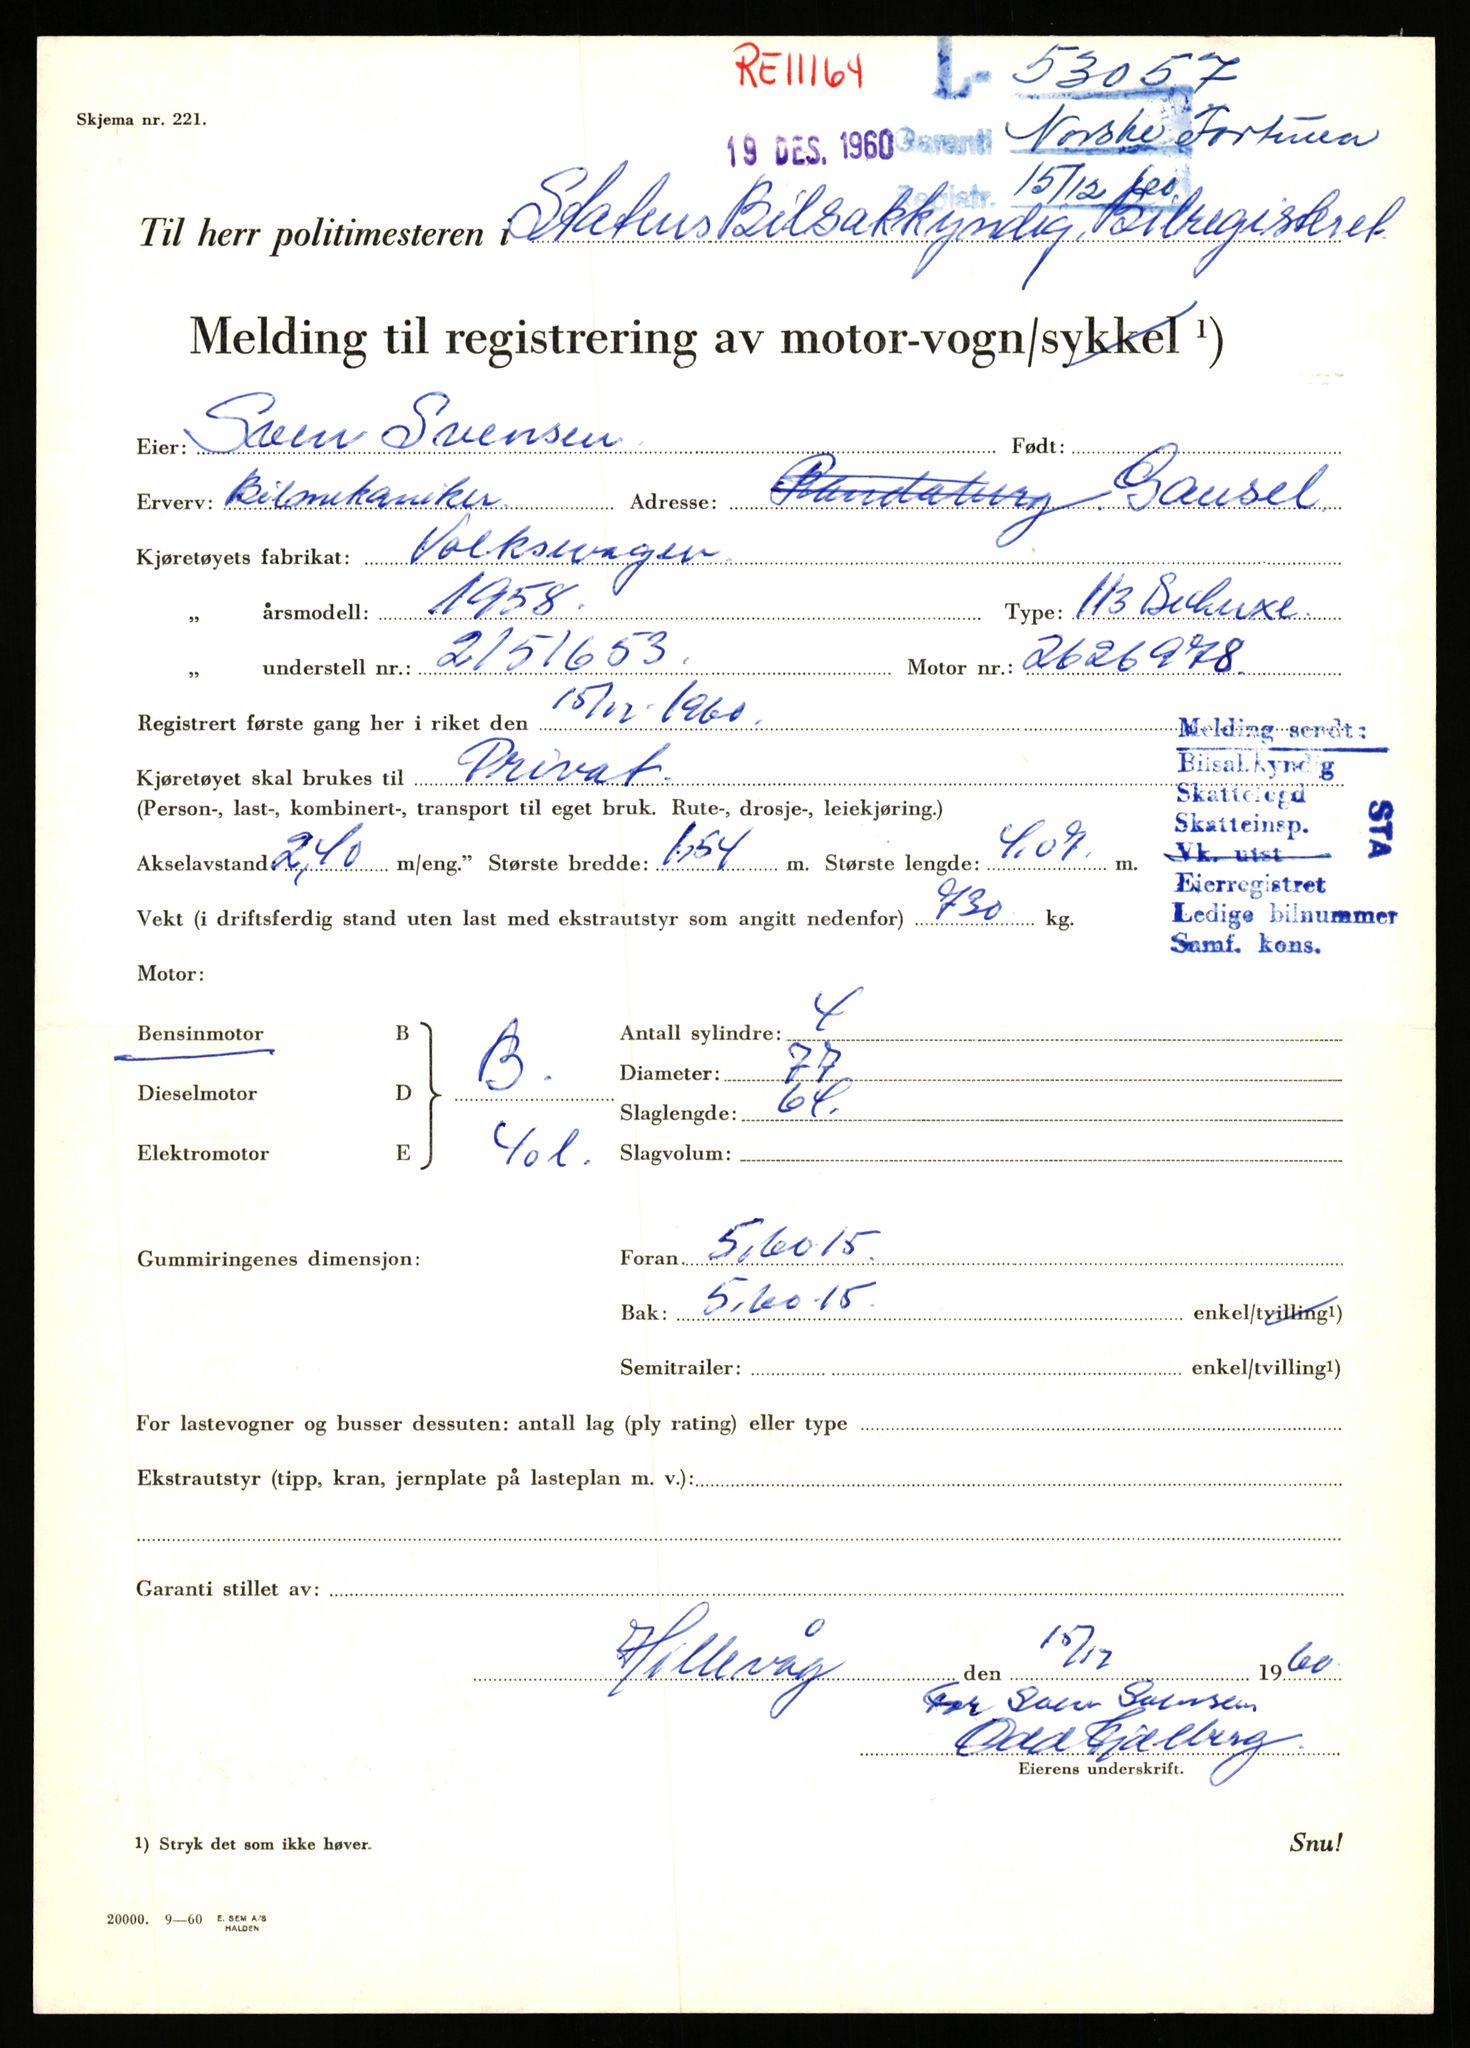 RE111164
L- 53057
Skjema nr. 221.
19 DES. 1960
Garanti Norske Fortuna
Registr. 15/12 60.
Til herr politimesteren i Statens Bilsakkyndig, Bilregisteret.
Melding til registrering av motor-vogn/sykkel ¹)
Eier: Sven Svensen. Født:
Erverv: Bilmekaniker. Adresse: Randaberg Gausel.
Kjøretøyets fabrikat: Volkswagen.
„ årsmodell: 1958. Type: 113 Deluxe.
„ understell nr.: 2151653. Motor nr.: 2626978.
Registrert første gang her i riket den 15/12-1960.
Melding sendt:
Kjøretøyet skal brukes til Privat.
Bilsakkyndig
(Person-, last-, kombinert-, transport til eget bruk. Rute-, drosje-, leiekjøring.)
Skattelegd
Skatteinsp.
STA
Akselavstand 2,40 m/eng.” Største bredde: 1,54 m. Største lengde: 4.07. m.
Vk. utst
Eierregistret
Vekt (i driftsferdig stand uten last med ekstrautstyr som angitt nedenfor) 730 kg.
Ledige bilnummer
Samf. kons.
Motor:
Bensinmotor B
Dieselmotor D
Elektromotor E
B.
40 l.
Antall sylindre: 4
Diameter: 77
Slaglengde: 64.
Slagvolum:
Gummiringenes dimensjon: Foran 5,60-15.
Bak: 5,60-15. enkel/tvilling¹)
Semitrailer: enkel/tvilling¹)
For lastevogner og busser dessuten: antall lag (ply rating) eller type
Ekstrautstyr (tipp, kran, jernplate på lasteplan m. v.):
Garanti stillet av:
Hillevåg den 15/12 1960
For Sven Svensen
Odd Fjelberg.
Eierens underskrift.
1) Stryk det som ikke høver.
Snu!
20000. 9—60 E. SEM A/S
HALDEN